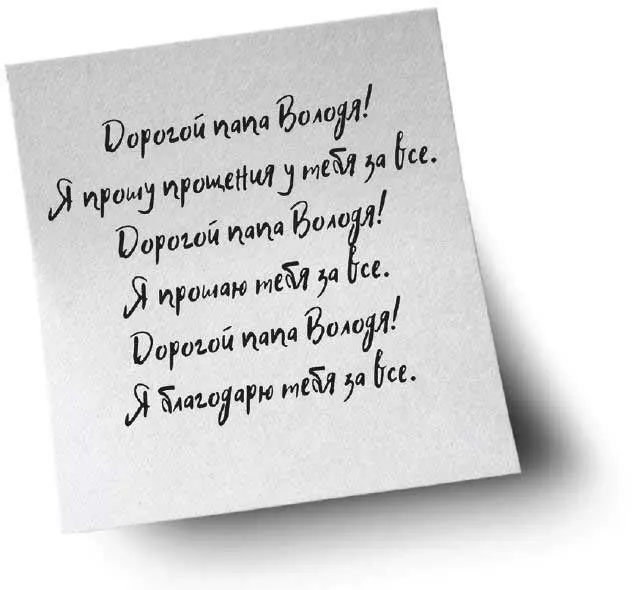 Дорогой папа Володя!
Я прошу прощения у тебя за все.
Дорогой папа Володя!
Я прощаю тебя за все.
Дорогой папа Володя!
Я благодарю тебя за все.